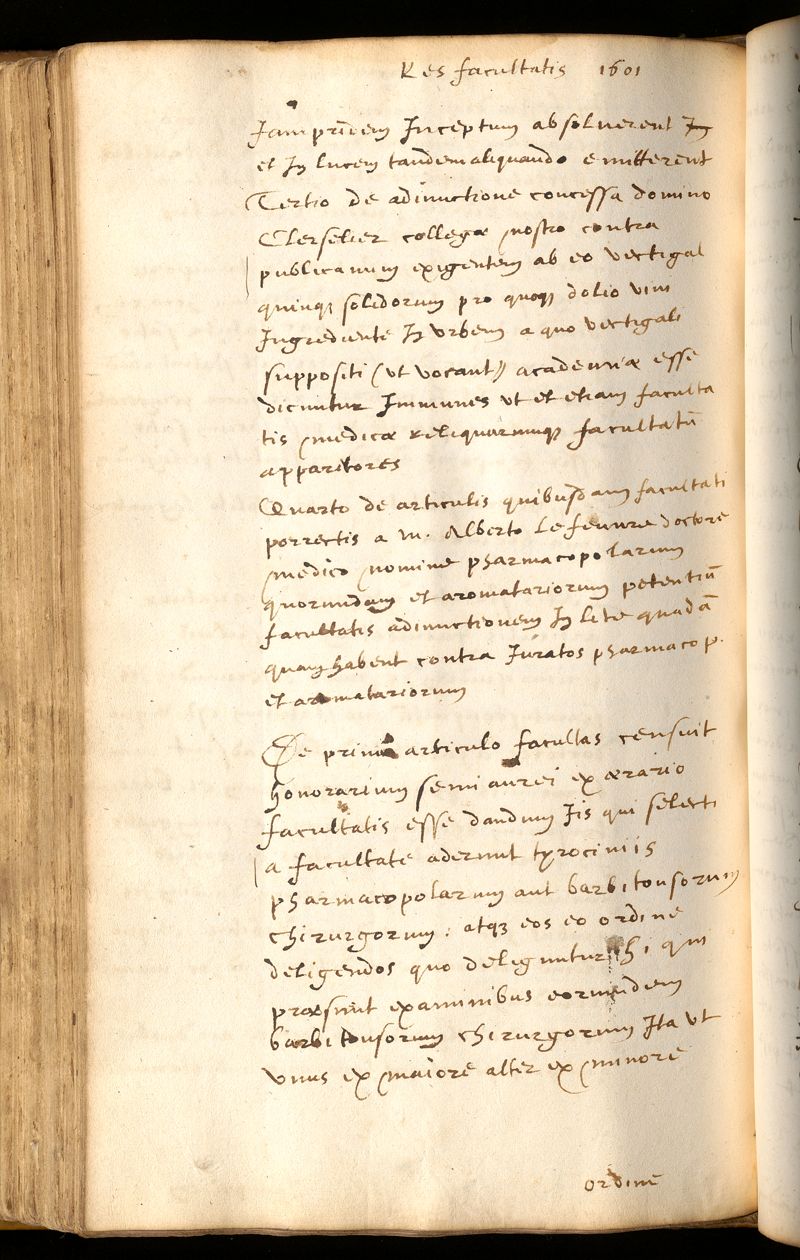 Res facultatis 1601
Jampridem Inceptum absolverent In
et In lucem tandem aliquando emitterent
Tertio de adiunctione concessa domino
Clerselier collegæ nostro contra
publicanum exigentem ab eo vectigal
quinq; solidorum pro quoq; dolio vini
Ingrediente In urbem a quo vectigali
suppositi (ut vocant) academiæ esse
dicuntur Immunes ut et etiam faculta
tis medicæ reliquarumq; facultatū
apparitores
Quarto de articulis quibusdam facultati
porrectis a m. Alberto Le feuvre doctore
medico nomine pharmacopolarum
quorumdam et aromatariorum petentiū
facultatis adiunctionem In lite quadā
quam habent contra Iuratos pharmacop.
et aromatariorum
De primo articulo facultas censuit
honorarium semi aurei ex ærario
facultatis esse dandum Iis qui selecti
a facultate aderunt tyrociniis
pharmacopolarum aut barbitonsorum
chirurgorum: atq; eos eo ordine
deligendos quo deliguntur hi qui
præsunt examinibus eorumdem
barbitonsorum chirurgorum Ita ut
unus ex maiore alter ex minore
ordine